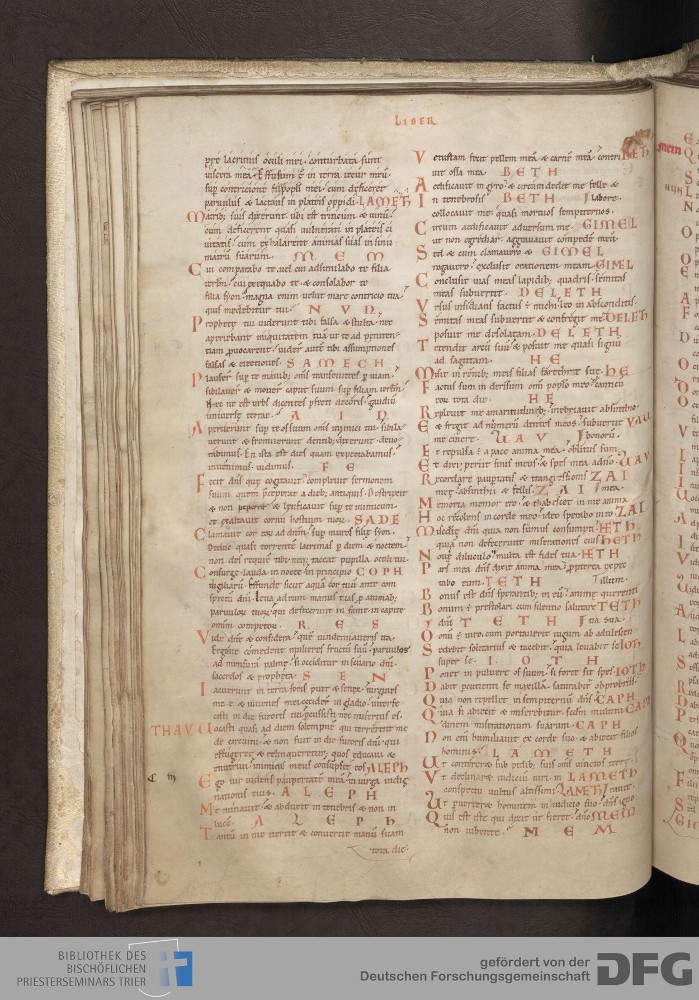 LIBER
pre lacrimis oculi mei. conturbata sunt
viscera mea. Effusum ẽ in terra iecur meũ
sup contricione filię ppli mei. cum deficeret
parvulus & lactans in plateis oppidi. LAMETH
Matrib; suis dixerunt. ubi est triticum & vinũ
cum deficerent quasi vulnerati in plateis ci
vitatis. cum exhalarent animas suas in sinu
matrũ suarum. MEM
Cui comparabo te. vel cui adsimilabo te filia
ierłm. cui exequabo te & consolabor te
filia syon. magna enim velut mare contricio tua
quis medebitur tui. NVN
Prophetę tui viderunt tibi falsa & stulta. nec
aperiebant iniquitatem tuã ut te ad peniten
tiam pvocarent. viderũ autẽ tibi assumptiones
falsas & eiectiones. SAMECH
Plauser sup te manib; oms transeuntes p viam.
sibilaver & mover caput suum sup filiam ierłm
Hęc ne est urbs dicentes pfecti decoris. gaudiũ
universę terrae. AIN
Aperuerunt sup te os suum oms inimici tui. sibila
verunt & fremuerunt dentib; dixerunt. devo
rabimus. En ista est dies quam expectabamus.
invenimus vidimus. FE
Fecit dñs quę cogitavit. complevit sermonem
suum quem pceperat a dieb; antiquis. Destruxit
& non pepercit & lętificavit sup te inimicum.
& exaltavit cornu hostium tuor̃. SADE
Clamavit cor eor̃ ad dñm. sup muros filię syon.
Deduc quasi torrentẽ lacrimas p diem & noctem.
non des requiẽ tibi. neq; taceat pupilla oculi tui.
Consurge. lauda in nocte in principio COPH
vigiliarũ. Effunde sicut aqua cor tuũ ante con
spectũ dñi. Leva ad eum manus tuas p animab;
parvulor̃ tuor̃. qui defecerunt in fame in capite
omñ compitor̃. RES
Vide dñe & considera. quẽ vindemiaveris ita.
Ergone comedent mulieres fructũ suũ. parvulos
ad mensurã palmę. si occiditur in sc̃uario dñi
sacerdos & propheta. SEN
Iacuerunt in terra foris puer & senex. virgines
meę & iuvenes mei ceciderũ in gladio. interfe
cisti in die furoris tui. pcussisti. nec misertus es.
THAV Vocasti quasi ad diem solempnẽ qui terrerent me
de circuitu. & non fuit in die furoris dñi. qui
effugeret & relinqueretur. quos educavi &
enutrivi. inimicus meus consũpsit eos ALEPH
Ego vir videns paupertatẽ meã. in virga indig
nationis eius. ALEPH
Me minavit & adduxit in tenebris & non in
lucẽ. ALEPH
Tantũ in me vertit & convertit manũ suam
tota die.
Vetustam fecit pellem meã & carnẽ meã. contri BETH
vit ossa mea. BETH
Aedificavit in gyro & circum dedit me felle &
In tenebrosis BETH labore.
collocavit me. quasi mortuos sempiternos.
Circum aedificavit adversum me GIMEL
ut non egrediar. aggravavit compedẽ meũ.
Sed & cum clamavero & GIMEL
rogavero. exclusit orationem meam. GIMEL
Conclusit vias meas lapidib; quadris. semitas
meas subvertit. DELETH
Vrsus insidians factus ẽ michi. leo in absconditis.
Semitas meas subvertit & confregit me. DELETH
posuit me desolatam. DELETH
Tetendit arcũ suũ. & posuit me quasi signũ
ad sagittam. HE
Misit in renib; meis filias faretrae suę. HE
Factus sum in derisum omi poplo meo. canticũ
eor̃ tota die. HE
Replevit me amaritudinib;. inebriavit absinthio.
Et fregit ad numerũ dentes meos. subvertit VAV
me cinere. VAV bonorũ.
Et repulsa ẽ a pace anima mea. oblitus sum
Et dixi. periit finis meus. & spes mea a dño. VAV
Recordare paupertatis & transgressionis ZAI
meę. absinthii & fellis. ZAI mea.
Memoria memor ero. & thabescet in me anima
Hoc recolens in corde meo. ideo sperabo in eo. ZAI
Misericordię dñi. quia non sumus consumpti. HETH
quia non defecerunt miserationes eius HETH
Novi diluculo. multa est fides tua. HETH
Pars mea dñs dixit anima mea. ppterea expec
tabo eum. TETH illum.
Bonus est dñs sperantib; in eũ. animę querenti
Bonum ẽ prestolari cum silentio salutare TETH
dei. TETH sua.
Bonũ ẽ viro. cum portaverit iugum ab adulescen
Sedebit solitarius & tacebit. quia levabit se IOTH
super se. IOTH
Ponet in pulvere os suum. si forte sit spes IOTH
Dabit pcutienti se maxillã. saturabit̃ obprobriis.
Quia non repellet in sempiternũ dñs. CAPH
Quia si abiecit & miserebitur. scdm multitu CAPH
dinem miserationum suarum. CAPH
Non enĩ humiliavit ex corde suo. & abiecit filios
hominis. LAMETH
Vt contereret sub pedib; suis oms vinctos terrę.
Vt declinaret iudiciũ viri. in LAMETH
conspectu vultus altissimi. LAMETH ravit.
Vt pverteret hominem in iudicio suo. dñs igno
Quis est iste qui dixit ut fieret. dño MEM
non iubente. MEM
BIBLIOTHEK DES
BISCHÖFLICHEN
PRIESTERSEMINARS TRIER
gefördert von der
Deutschen Forschungsgemeinschaft
DFG